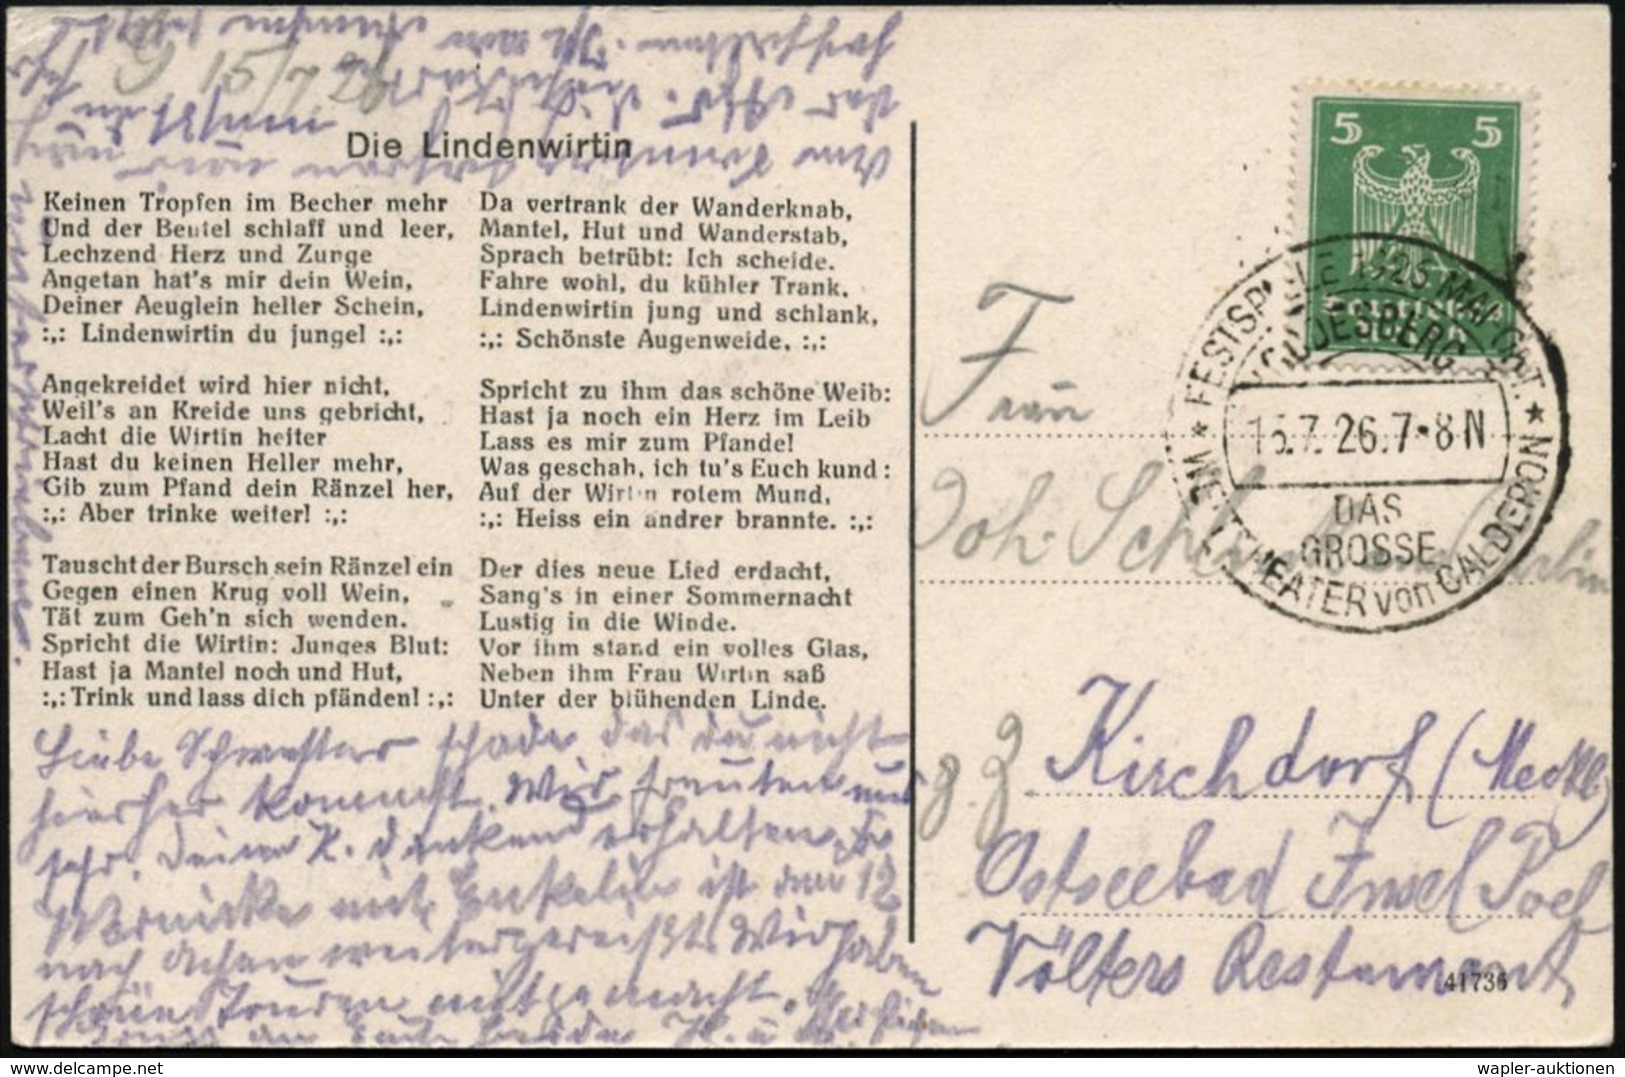 G 15/7 26
Die Lindenwirtin
Keinen Tropfen im Becher mehr
Und der Beutel schlaff und leer,
Lechzend Herz und Zunge
Angetan hat's mir dein Wein,
Deiner Aeuglein heller Schein,
:,: Lindenwirtin du junge! :,:
Angekreidet wird hier nicht,
Weil's an Kreide uns gebricht,
Lacht die Wirtin heiter
Hast du keinen Heller mehr,
Gib zum Pfand dein Ränzel her,
:,: Aber trinke weiter! :,:
Tauscht der Bursch sein Ränzel ein
Gegen einen Krug voll Wein,
Tät zum Geh'n sich wenden.
Spricht die Wirtin: Junges Blut:
Hast ja Mantel noch und Hut,
:,: Trink und lass dich pfänden! :,:
Da vertrank der Wanderknab,
Mantel, Hut und Wanderstab,
Sprach betrübt: Ich scheide.
Fahre wohl, du kühler Trank,
Lindenwirtin jung und schlank,
:,: Schönste Augenweide. :,:
Spricht zu ihm das schöne Weib:
Hast ja noch ein Herz im Leib
Lass es mir zum Pfande!
Was geschah, ich tu's Euch kund:
Auf der Wirtin rotem Mund,
:,: Heiss ein andrer brannte. :,:
Der dies neue Lied erdacht,
Sang's in einer Sommernacht
Lustig in die Winde.
Vor ihm stand ein volles Glas,
Neben ihm Frau Wirtin saß
Unter der blühenden Linde.
Liebe Schwester schade das du nicht
hierher kommst. Wir freuten uns
sehr. Deine K. dankend erhalten.
mit Enkelin ist am 12
nach Achen weitergereißt. Wir haben
schöne Touren mitgemacht.
5 5
FESTSPIELE 1925 MAI-OKT.
GODESBERG
15.7.26.7-8N
DAS
GROSSE
WELTTHEATER von CALDERON
Frau
Joh.
z. Z. Kirchdorf (Meckl)
Ostseebad Insel Poel
Völters Restamant
41736
wapler-auktionen